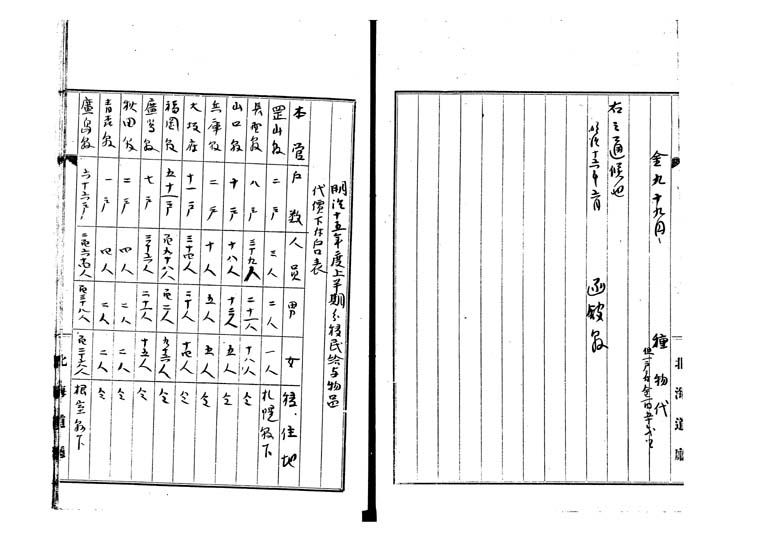 金九十九円、 種物代
右之通候也
明治十六年二月 函館縣
北海道廰
明治十五年度上半期分移民給与物品
代價下付戸口表
本管 戸数 人員 男 女 移住地
岡山縣 二戸 三人 二人 一人 札幌縣下
長野縣 八戸 三十九人 二十一人 十八人 仝
山口縣 十戸 十八人 十三人 五人 仝
兵庫縣 二戸 十人 五人 五人 仝
大坂府 十一戸 三十四人 二十人 十四人 仝
福岡縣 五十一戸 百九十八人 百二人 九十六人 仝
廣島縣 七戸 三十六人 二十一人 十五人 仝
秋田縣 二戸 四人 二人 二人 仝
青森縣 一戸 四人 二人 二人 仝
廣島縣 六十六戸 二百六十四人 百三十八人 百二十六人 根室縣下
北海道廰